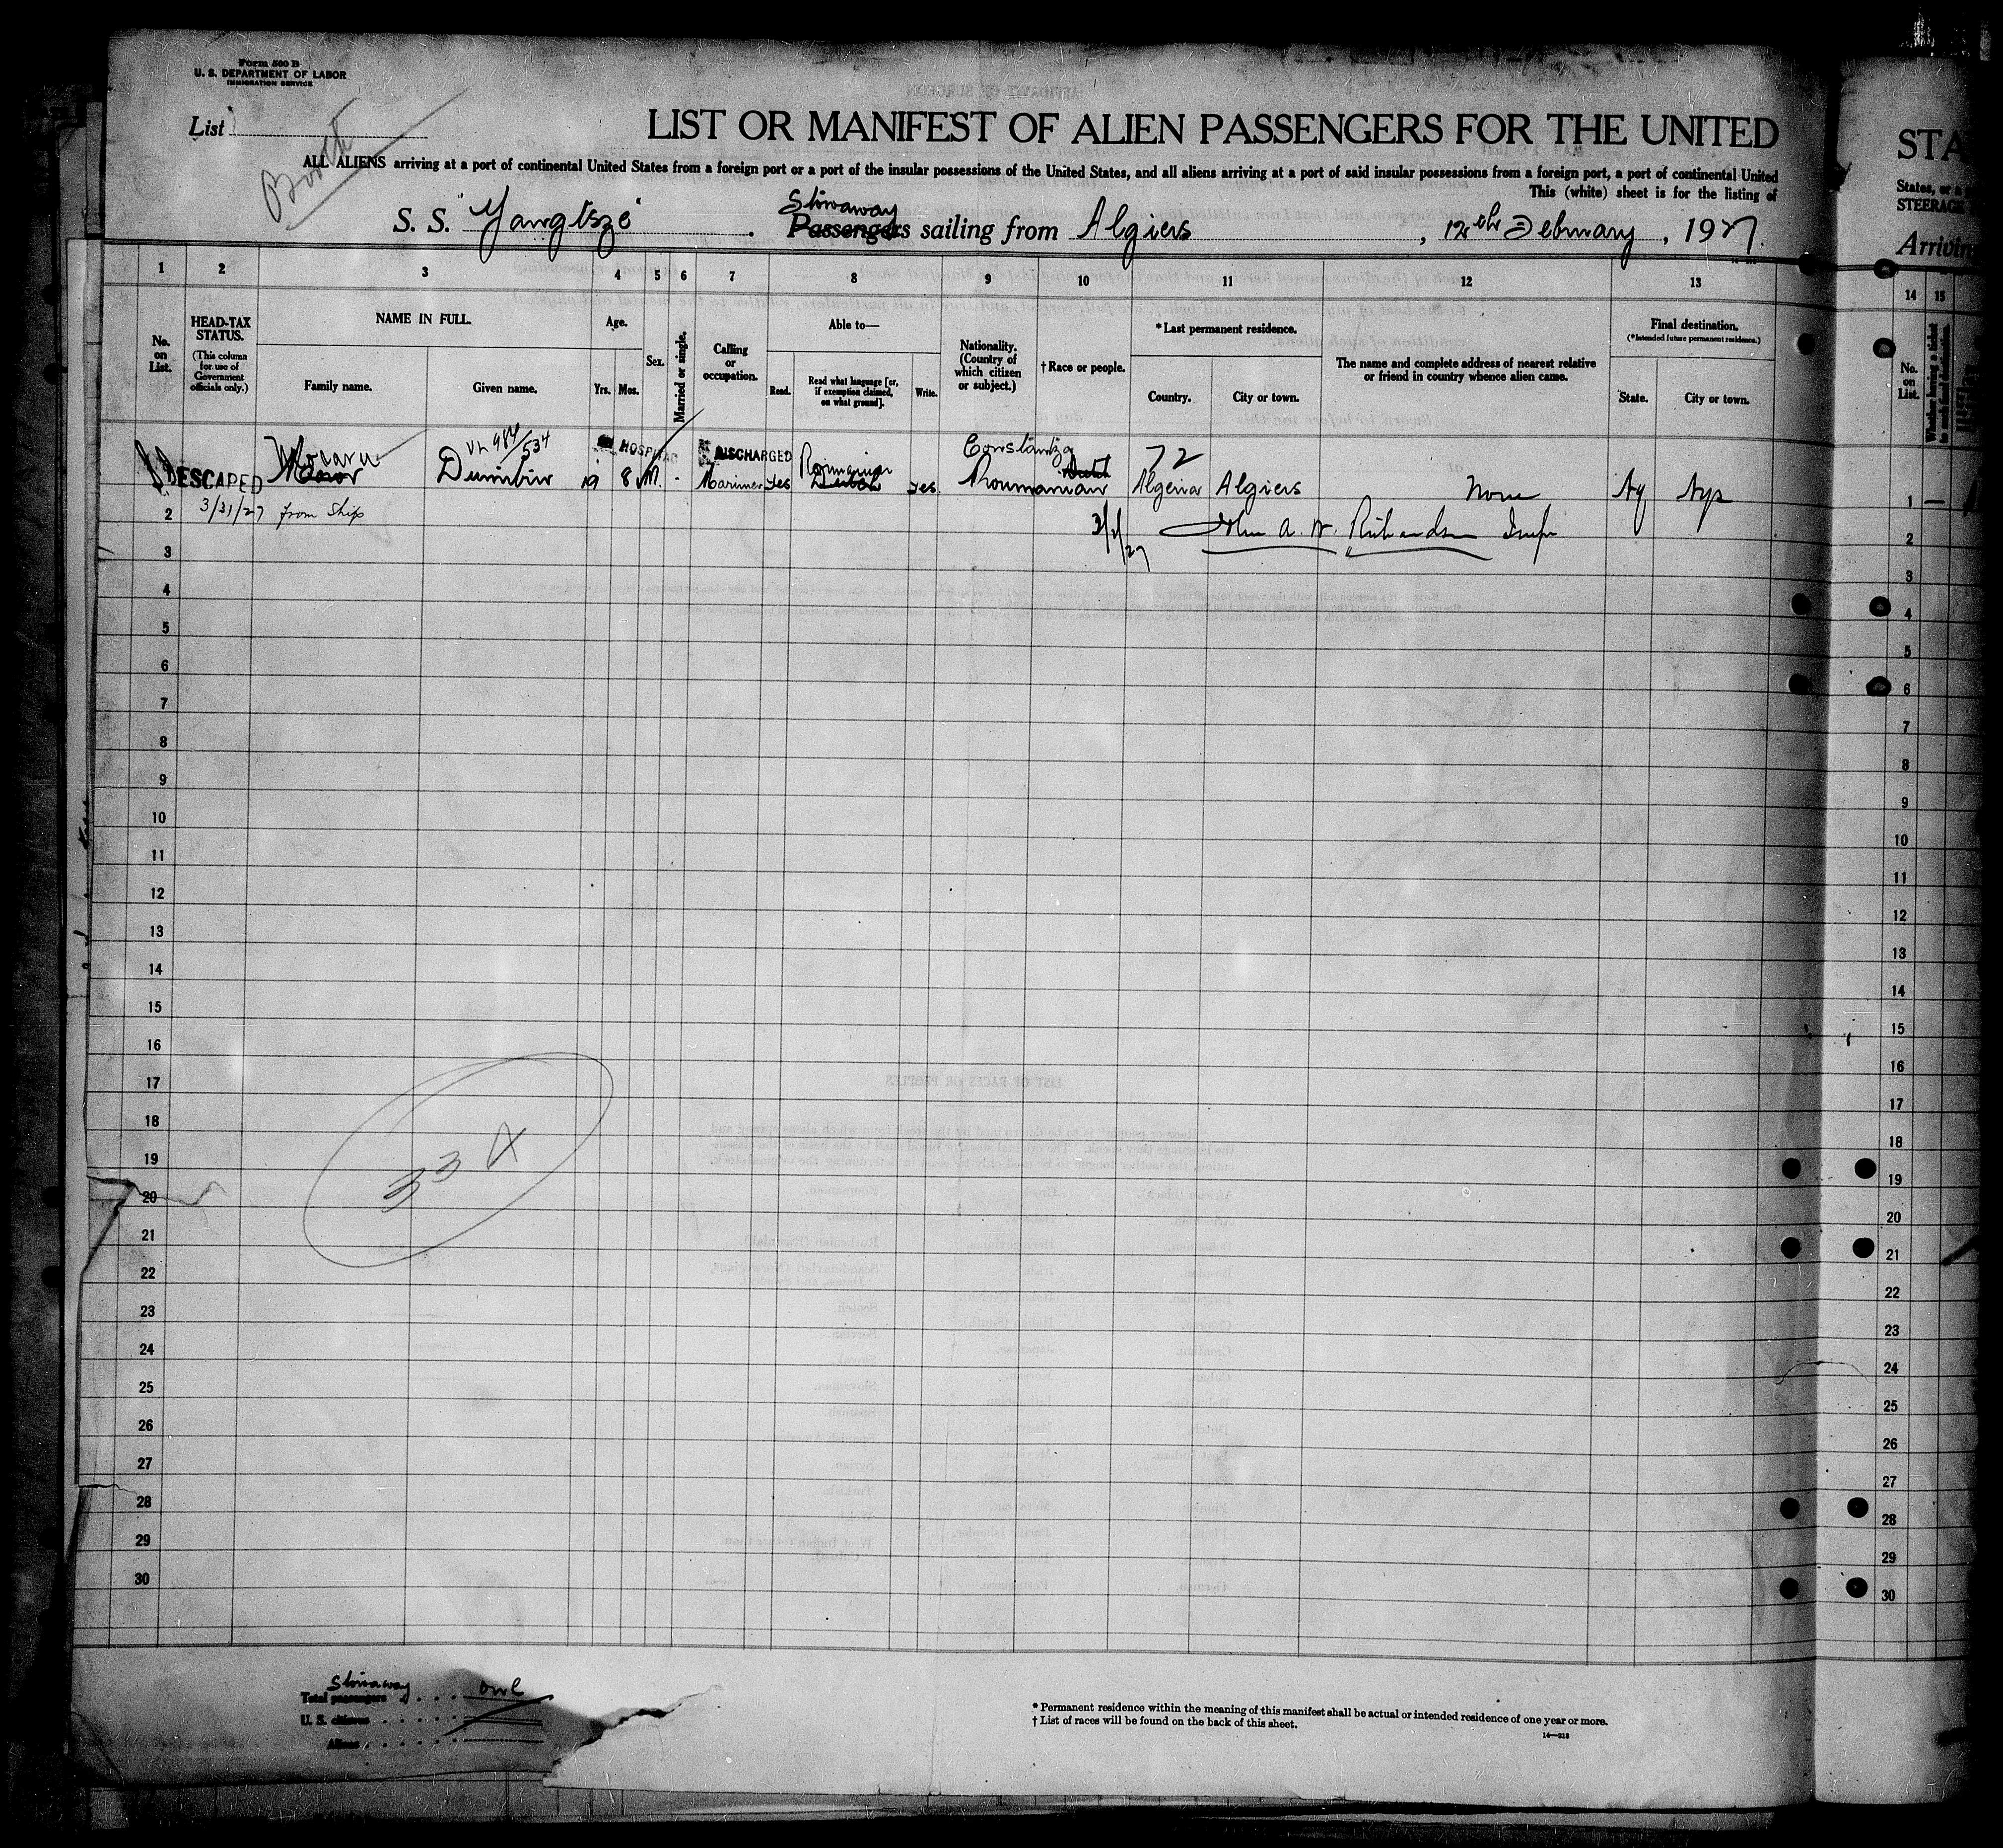 Form 500 B
U. S. DEPARTMENT OF LABOR
IMMIGRATION SERVICE
List
LIST OR MANIFEST OF ALIEN PASSENGERS FOR THE UNITED
ALL ALIENS arriving at a port of continental United States from a foreign port or a port of the insular possessions of the United States, and all aliens arriving at a port of said insular possessions from a foreign port, a port of continental United
This (white) sheet is for the listing of
Stowaway
S. S. "Yangtsze". Passengers sailing from Algiers, 12th February, 1927.
1 2 3 4 5 6 7 8 9 10 11 12 13
No. on List.
HEAD-TAX STATUS.
(This column for use of Government officials only.)
NAME IN FULL.
Family name.
Given name.
Age.
Yrs. Mos.
Sex.
Married or single.
Calling or occupation.
Able to—
Read.
Read what language [or, if exemption claimed, on what ground].
Write.
Nationality. (Country of which citizen or subject.)
† Race or people.
*Last permanent residence.
Country.
City or town.
The name and complete address of nearest relative or friend in country whence alien came.
Final destination.
(*Intended future permanent residence.)
State.
City or town.
984/534
HOSPITAL DISCHARGED
Roumanian
Constantza
72
ESCAPED 19 8 M. - Mariner Yes Yes Roumanian Algeria Algiers None NY NYC
3/31/27 from Ship
John A. W. Richardson Insp
2
3
4
5
6
7
8
9
10
11
12
13
14
15
16
17
18
19
20
21
22
23
24
25
26
27
28
29
30
33 A
Stowaway
Total passengers one
U. S. citizens
Aliens
* Permanent residence within the meaning of this manifest shall be actual or intended residence of one year or more.
† List of races will be found on the back of this sheet.
14—318
STA
States, or a
STEERAGE
Arrivin
14 15
No. on List.
Whether having a ticket to such final destination.
1 —
2
3
4
5
6
7
8
9
10
11
12
13
14
15
16
17
18
19
20
21
22
23
24
25
26
27
28
29
30